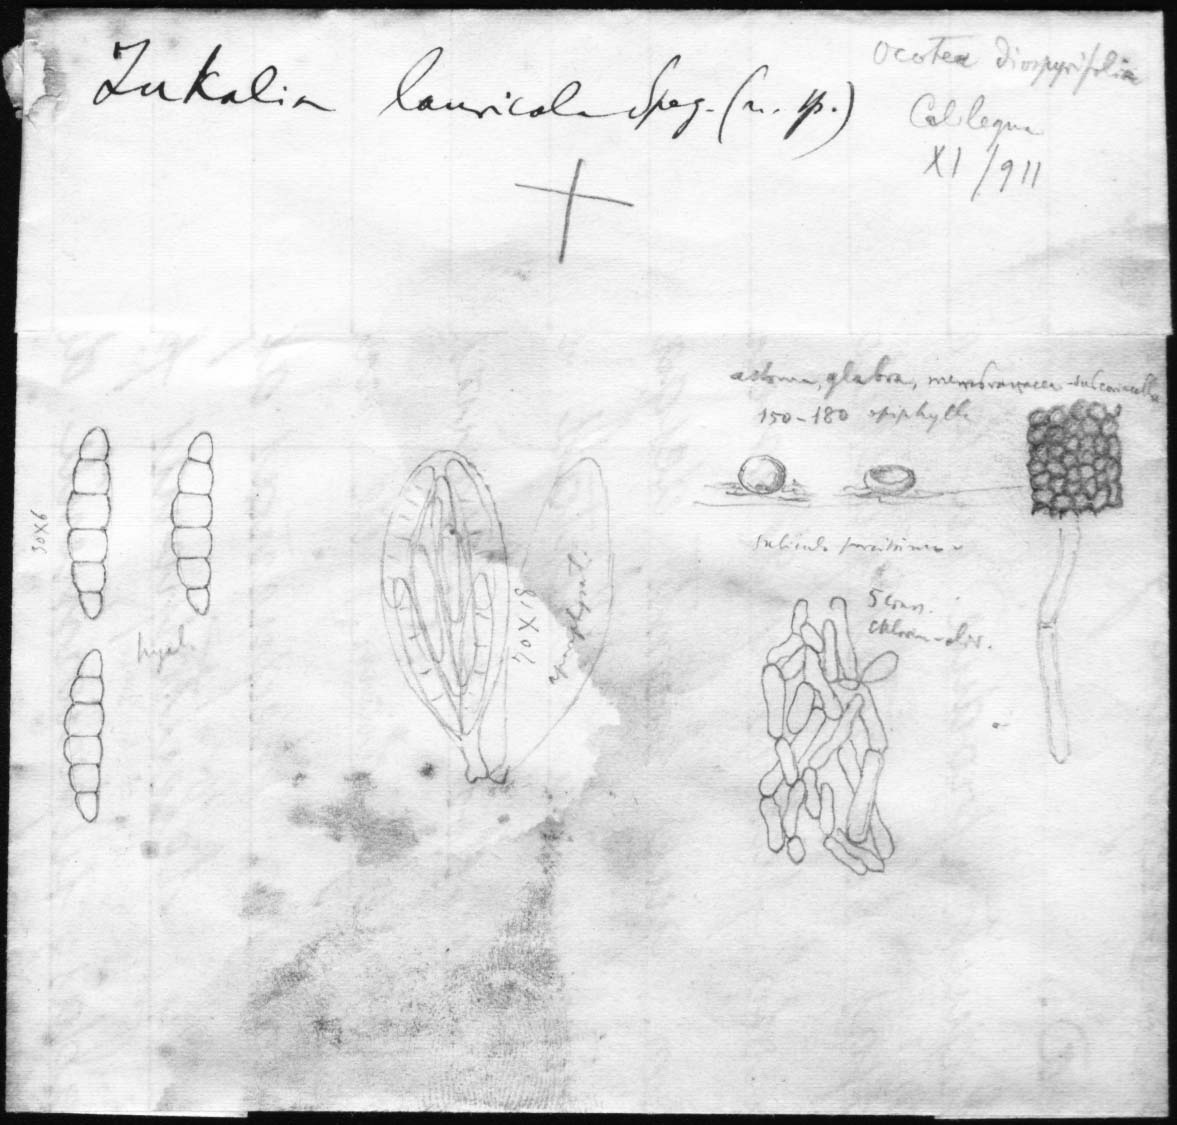 Zukalia lauricola Speg. (n. sp.)
Ocotea diospyrifolia
Calilegua
XI/911
astoma, glabra, membranacea-subcoriacella
150-180 epiphylla
30X6
subiculo parcissimo
5 crass.
chlorin-oliv.
hyal.
70X18